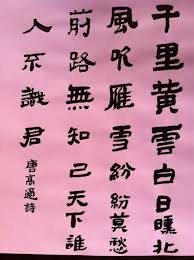 千里黃雲白日曛北
風吹雁雪紛紛莫愁
前路無知己天下誰
人不識君
唐高適詩